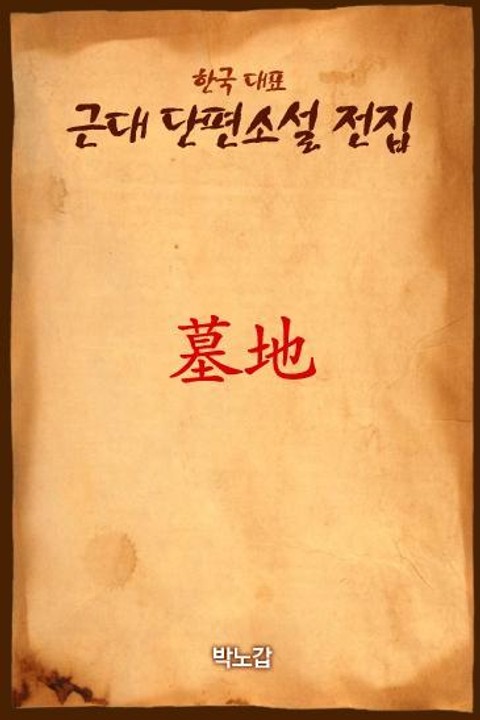 한국 대표
근대 단편소설 전집
墓地
박노갑